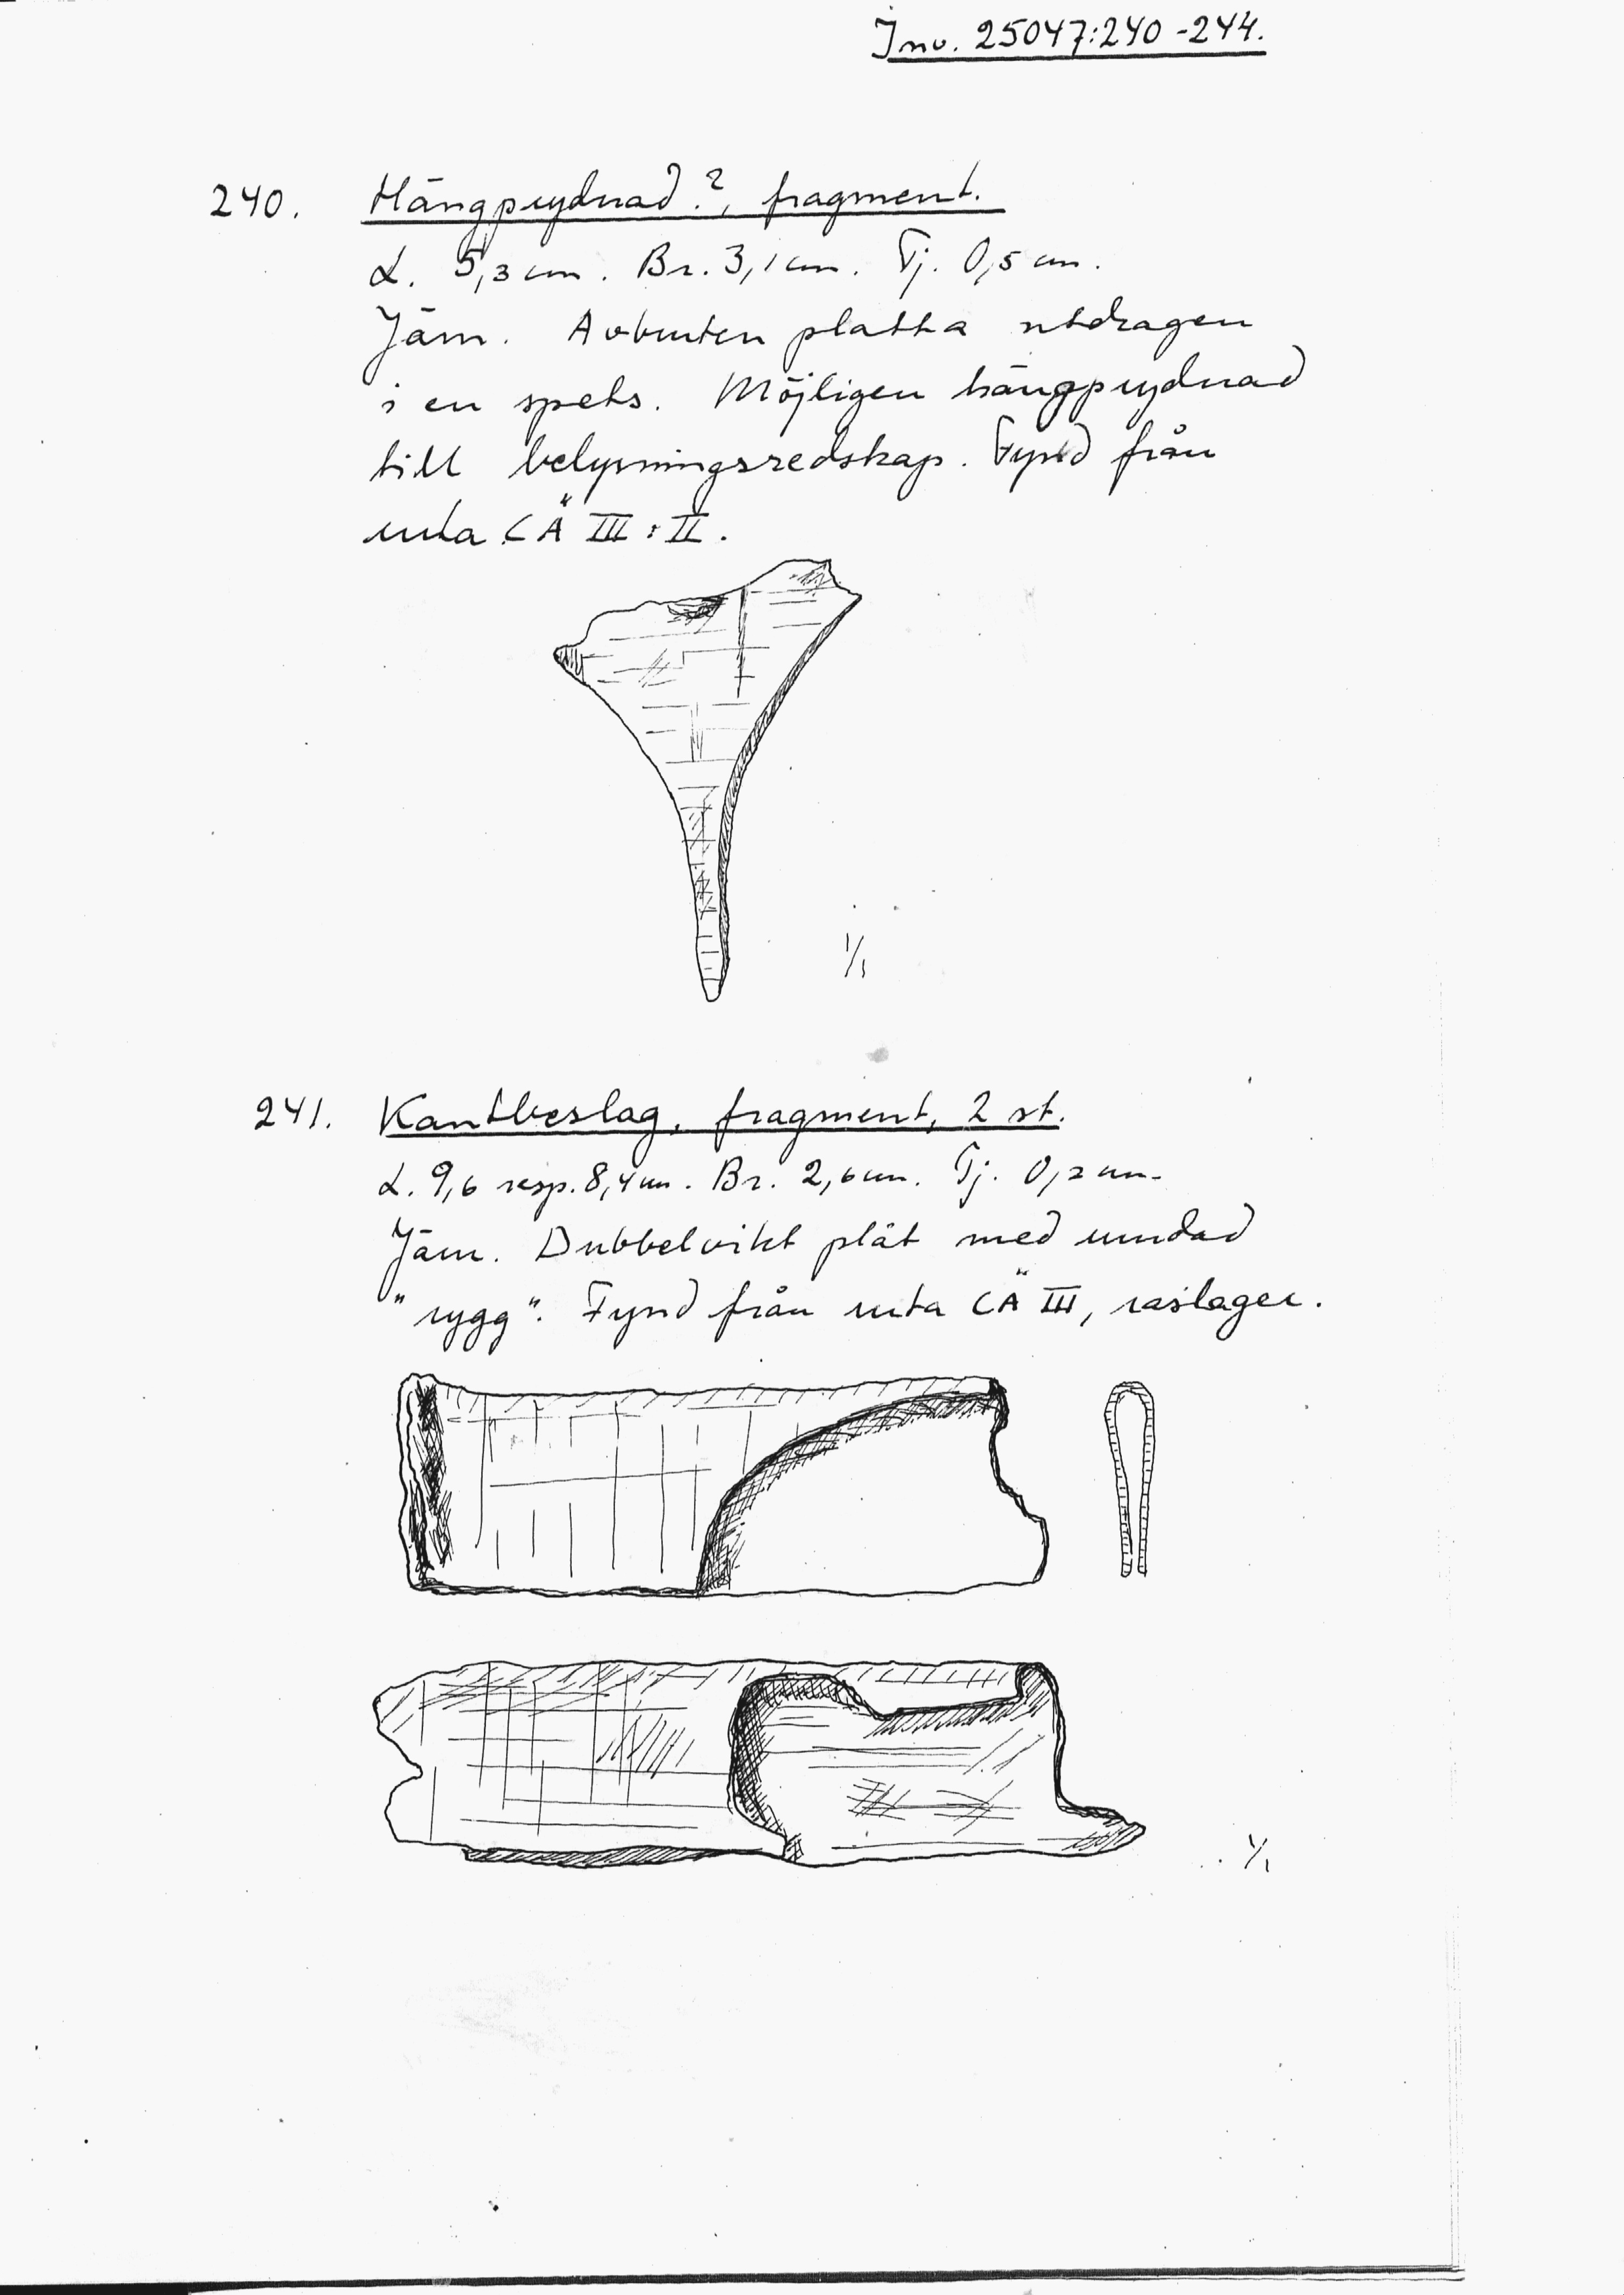 Inv. 25047:240-244.
240. Hängprydnad?, fragment.
L. 5,3 cm. Br. 3,1 cm. Tj. 0,5 cm.
Järn. Avbruten platta utdragen
i en spets. Möjligen hängprydnad
till belysningsredskap. Fynd från
ruta CÄ III:II.
1/1
241. Kantbeslag, fragment, 2 st.
L. 9,6 resp. 8,4 cm. Br. 2,6 cm. Tj. 0,2 cm.
Järn. Dubbelvikt plåt med rundad
"rygg". Fynd från ruta CÄ III, raslager.
1/1